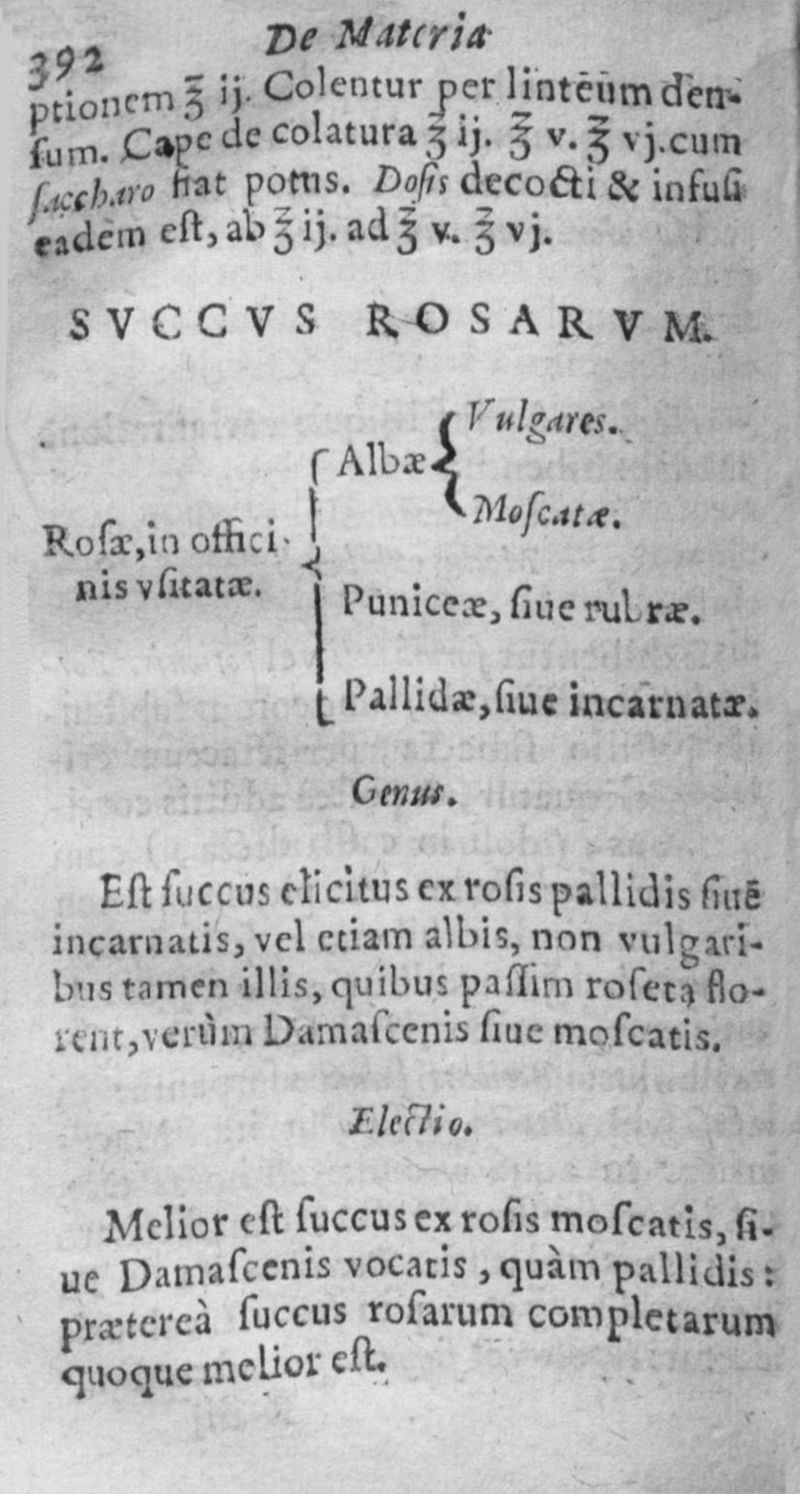 392 De Materia
ptionem ℥ ij. Colentur per linteum den-
ſum. Cape de colatura ℥ ij. ℥ v. ℥ vj. cum
ſaccharo fiat potus. Doſis decocti & infuſi
eadem eſt, ab ℥ ij. ad ℥ v. ℥ vj.
SVCCVS ROSARVM.
Roſæ, in offici-
nis vſitatæ.
Albæ
Vulgares.
Moſcatæ.
Puniceæ, ſiue rubræ.
Pallidæ, ſiue incarnatæ.
Genus.
Eſt ſuccus elicitus ex roſis pallidis ſiue
incarnatis, vel etiam albis, non vulgari-
bus tamen illis, quibus paſſim roſeta flo-
rent, verùm Damaſcenis ſiue moſcatis.
Electio.
Melior eſt ſuccus ex roſis moſcatis, ſi-
ue Damaſcenis vocatis, quàm pallidis:
prætereà ſuccus roſarum completarum
quoque melior eſt.